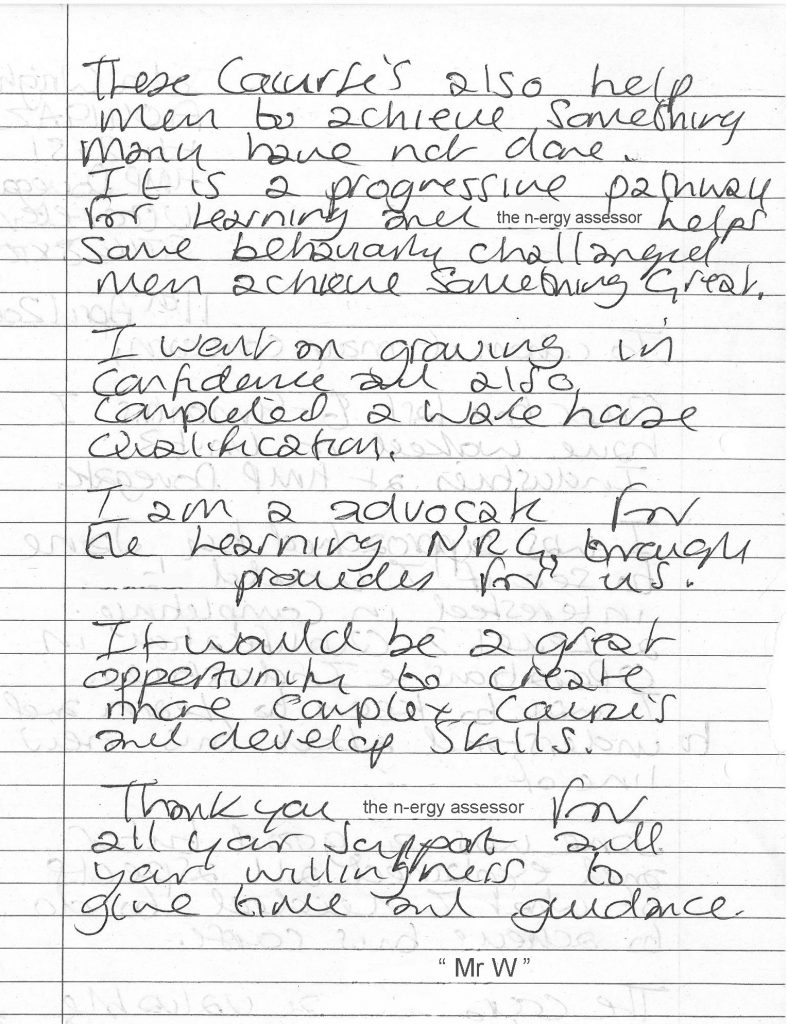 These Courses's also help
men to achieve something
many have not done.
It is a progressive pathway
for Learning and the n-ergy assessor helps
some behaviourly challanged
men achieve something Great.
I went on growing in
confidence and also
completed a ware house
qualification.
I am a advocate for
the Learning NRG, through
provides for us.
It would be a great
opportunity to create
more complex courses's
and develop skills.
Thank you the n-ergy assessor for
all your support and
your willingness to
give time and guidance.
“ Mr W ”